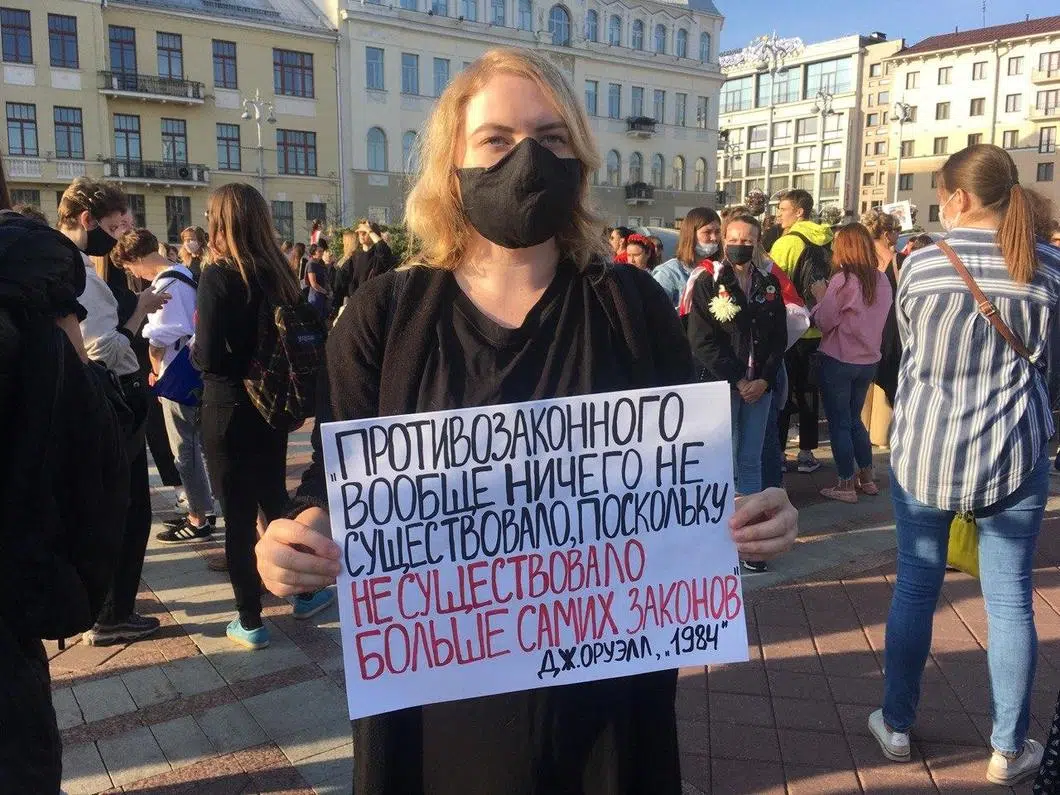 „ПРОТИВОЗАКОННОГО
ВООБЩЕ НИЧЕГО НЕ
СУЩЕСТВОВАЛО, ПОСКОЛЬКУ
НЕ СУЩЕСТВОВАЛО
БОЛЬШЕ САМИХ ЗАКОНОВ"
ДЖ. ОРУЭЛЛ, „1984"